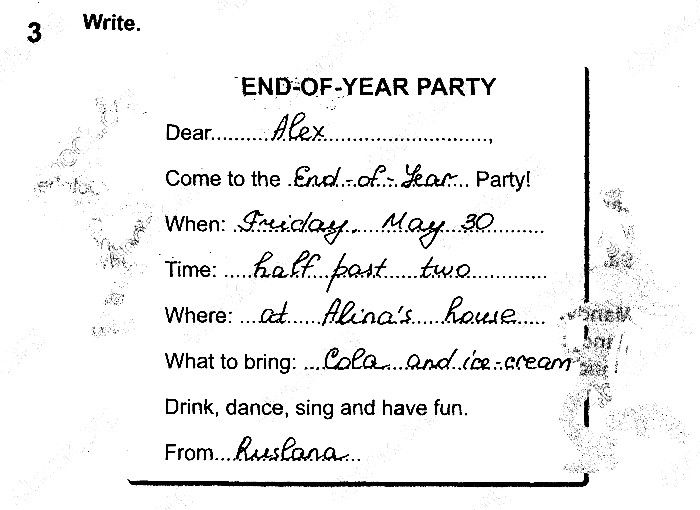 3 Write.
END-OF-YEAR PARTY
Dear.........Alex...........................,
Come to the .End-of-Year... Party!
When: .Friday, May 30........
Time: .....half past two.............
Where: ...at Alina's house.....
What to bring: ...Cola and ice-cream
Drink, dance, sing and have fun.
From...Ruslana...